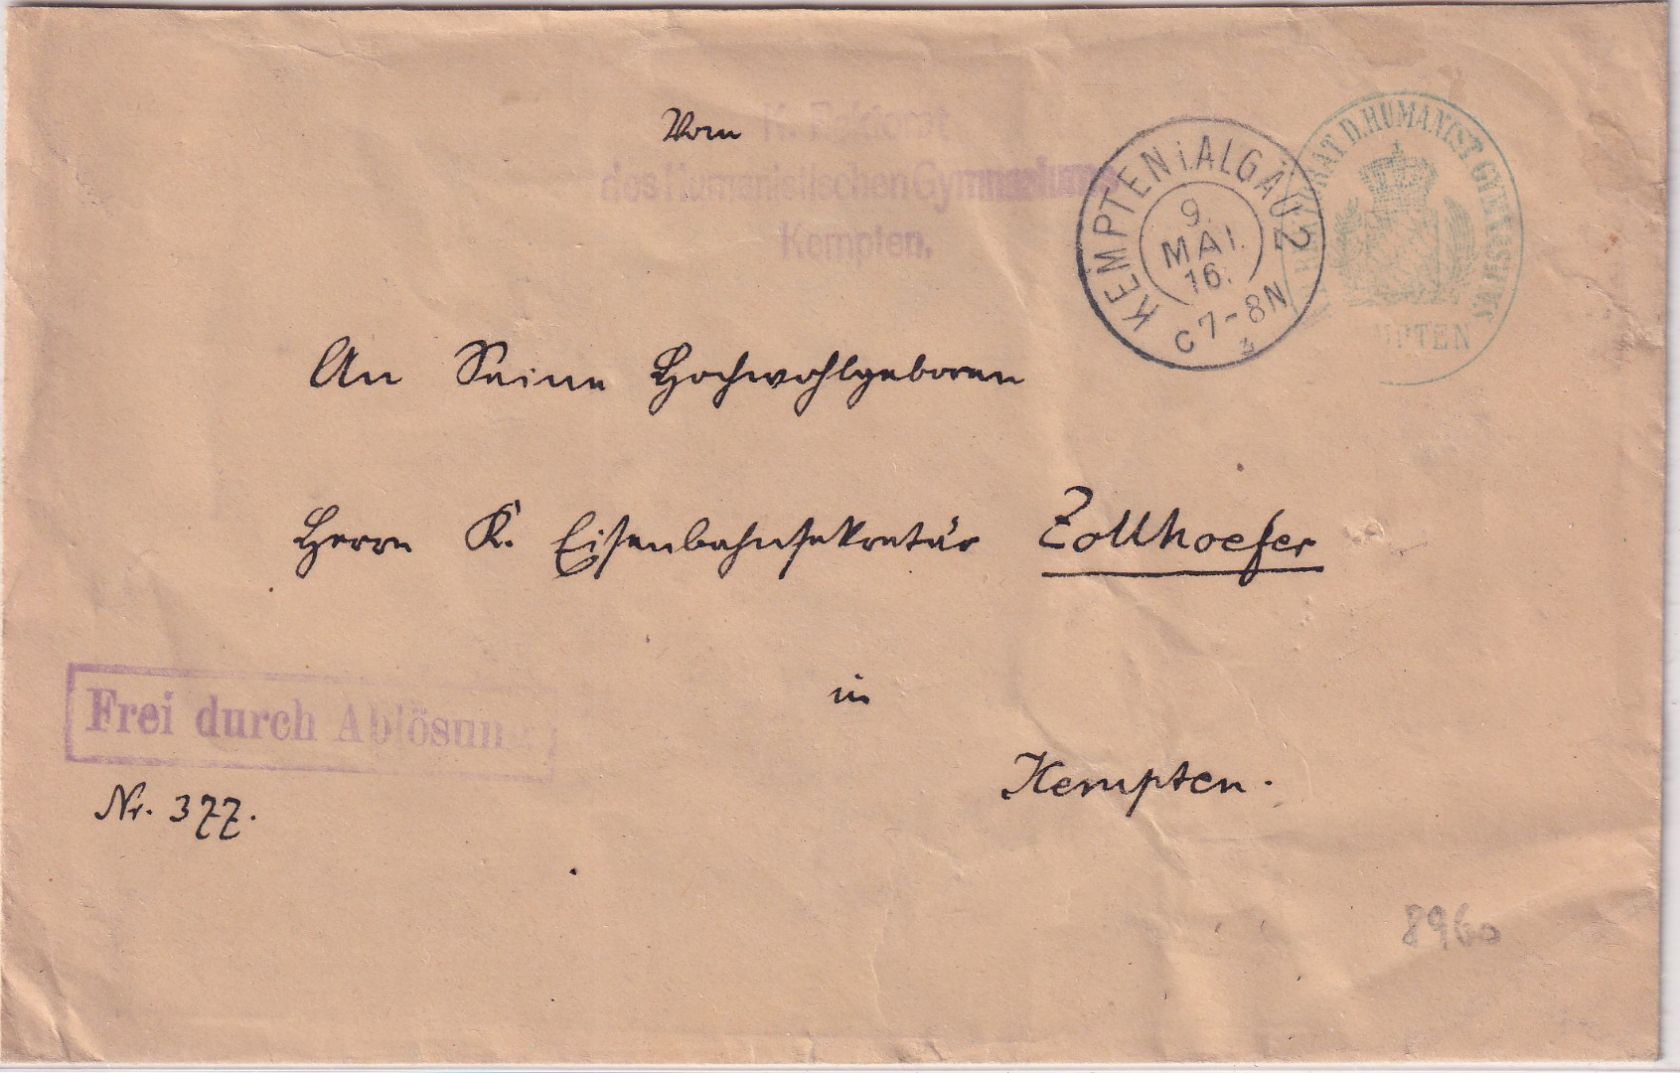 Vom K. Rektorat
des Humanistischen Gymnasiums
Kempten.
KEMPTEN i. ALGÄU 2
9.
MAI.
16.
C 7-8 N
D. HUMANIST GYMNASIUMS
An Seine Hochwohlgeboren
Herrn K. Eisenbahnsekretär Zollhoefer
in
Kempten.
Frei durch Ablösung
Nr. 377.
8960